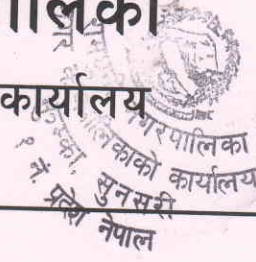 पालिका
कार्यालय
नगरपालिका
पालिकाको कार्यालय
सुनसरी
१ नं. प्रदेश नेपाल